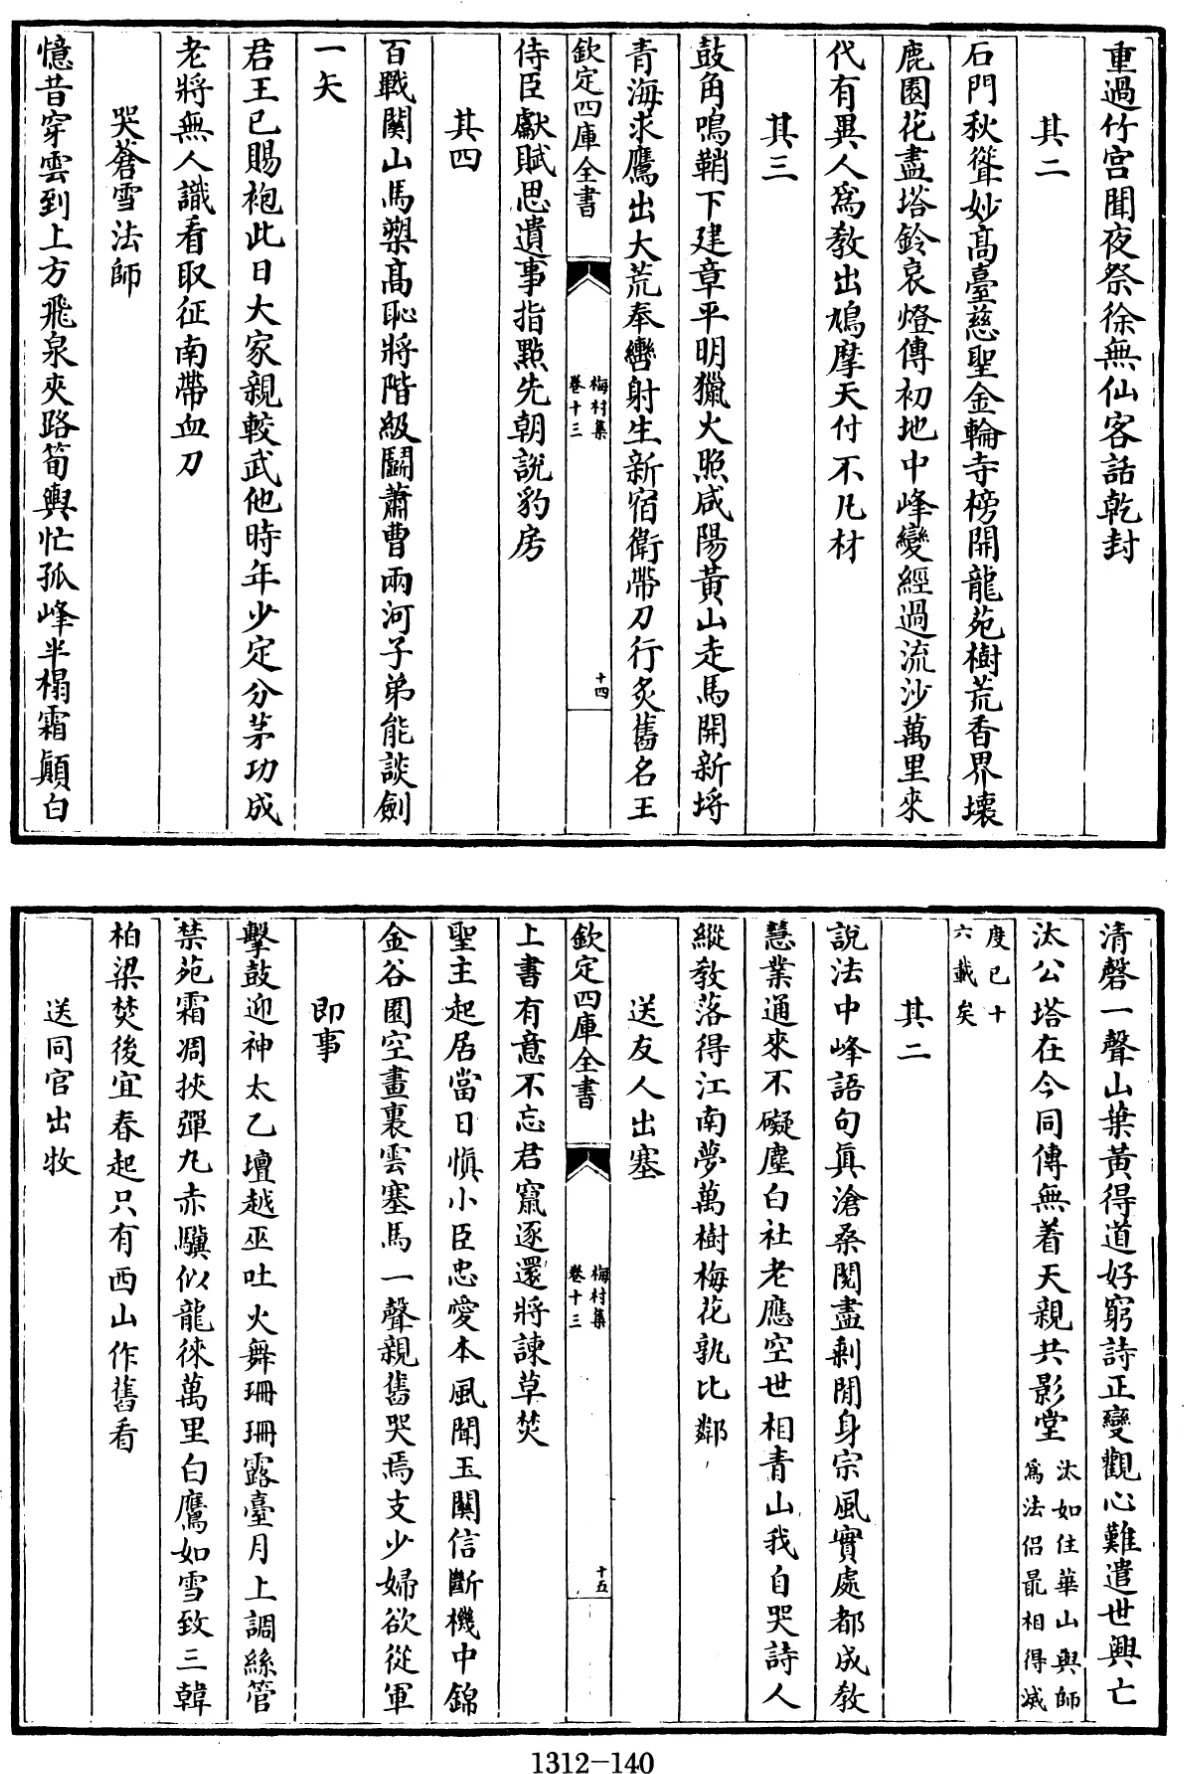 重過竹宫聞夜祭徐無仙客話乾封
其二
石門秋聳妙高臺慈聖金輪寺榜開龍苑樹荒香界壞
鹿園花盡塔鈴哀燈傳初地中峰變經過流沙萬里來
代有異人爲教出鳩摩天付不凡材
其三
鼓角鳴鞘下建章平明獵火照咸陽黄山走馬開新埒
青海求鷹出大荒奉轡射生新宿衛帶刀行炙舊名王
欽定四庫全書
梅村集
卷十三
十四
侍臣獻賦思遺事指點先朝説豹房
其四
百戰關山馬槊高恥將階級鬭蕭曹兩河子弟能談劍
一矢
君王已賜袍此日大家親較武他時年少定分茅功成
老將無人識看取征南帶血刀
哭蒼雪法師
憶昔穿雲到上方飛泉夾路筍輿忙孤峰半榻霜顛白
清磬一聲山葉黄得道好窮詩正變觀心難遣世興亡
汰公塔在今同傳無着天親共影堂
汰如住華山與師
爲法侣最相得滅
度已十
六載矣
其二
説法中峰語句真滄桑閲盡剩閒身宗風實處都成教
慧業通來不礙塵白社老應空世相青山我自哭詩人
縱教落得江南夢萬樹梅花孰比鄰
送友人出塞
欽定四庫全書
梅村集
卷十三
十五
上書有意不忘君竄逐還將諫草焚
聖主起居當日慎小臣忠愛本風聞玉關信斷機中錦
金谷園空畫裏雲塞馬一聲親舊哭焉支少婦欲從軍
即事
擊鼓迎神太乙壇越巫吐火舞珊珊露臺月上調絲管
禁苑霜凋挾彈丸赤驥似龍徠萬里白鷹如雪致三韓
柏梁焚後宜春起只有西山作舊看
送同官出牧
1312-140